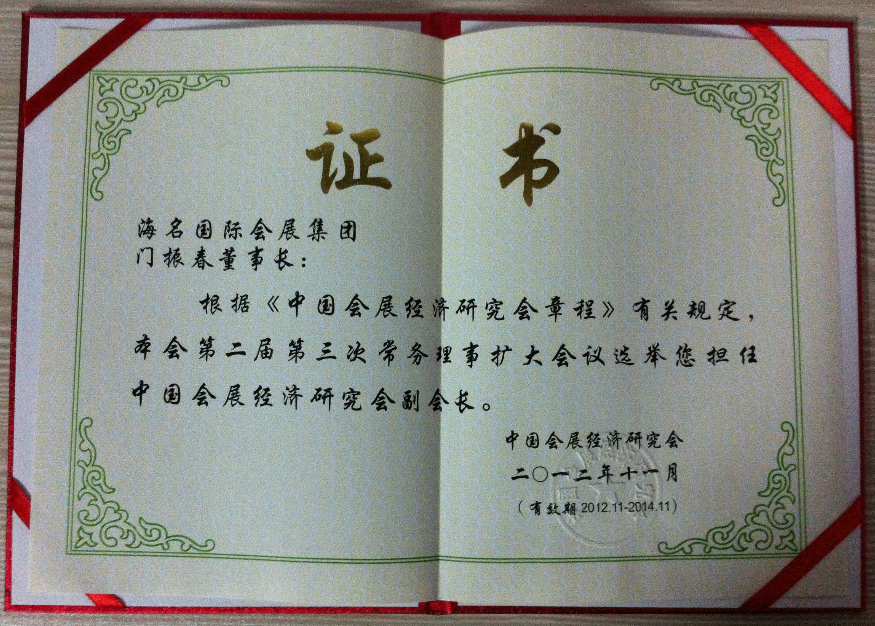 证书
海名国际会展集团
门振春董事长：
根据《中国会展经济研究会章程》有关规定，
本会第二届第三次常务理事扩大会议选举您担任
中国会展经济研究会副会长。
中国会展经济研究会
二〇一二年十一月
（有效期2012.11-2014.11）